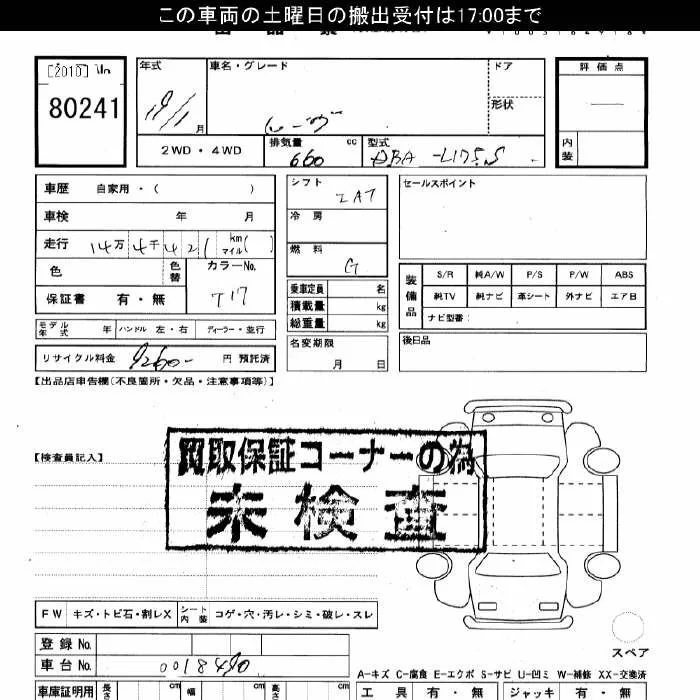 この車両の土曜日の搬出受付は17:00まで
[2010]
80241
年式 19/1 月
車名・グレード
ムーヴ
ドア
形状
評価点
内装
2WD・4WD
排気量 660 cc
型式 DBA-L175S
車歴 自家用・( )
車検 年 月
走行 14万4千421 km マイル( )
色 色替
カラーNo. T17
保証書 有・無
モデル年式 年 ハンドル 左・右 ディーラー・並行
リサイクル料金 9260- 円 預託済
シフト IAT
冷房
燃料 G
乗車定員 名
積載量 kg
総重量 kg
名変期限 月 日
セールスポイント
装備品
S/R 純A/W P/S P/W ABS
純TV 純ナビ 革シート 外ナビ エアB
ナビ型番:
後日品
【出品店申告欄(不良箇所・欠品・注意事項等)】
買取保証コーナーの為
未検査
【検査員記入】
FW キズ・トビ石・割レX シート内装 コゲ・穴・汚レ・シミ・破レ・スレ
スペア
登録No.
車台No. 0018490
A-キズ C-腐食 E-エクボ S-サビ U-凹ミ W-補修 XX-交換済
車庫証明用 長さ cm 幅 cm 高さ cm
工具 有・無 ジャッキ 有・無